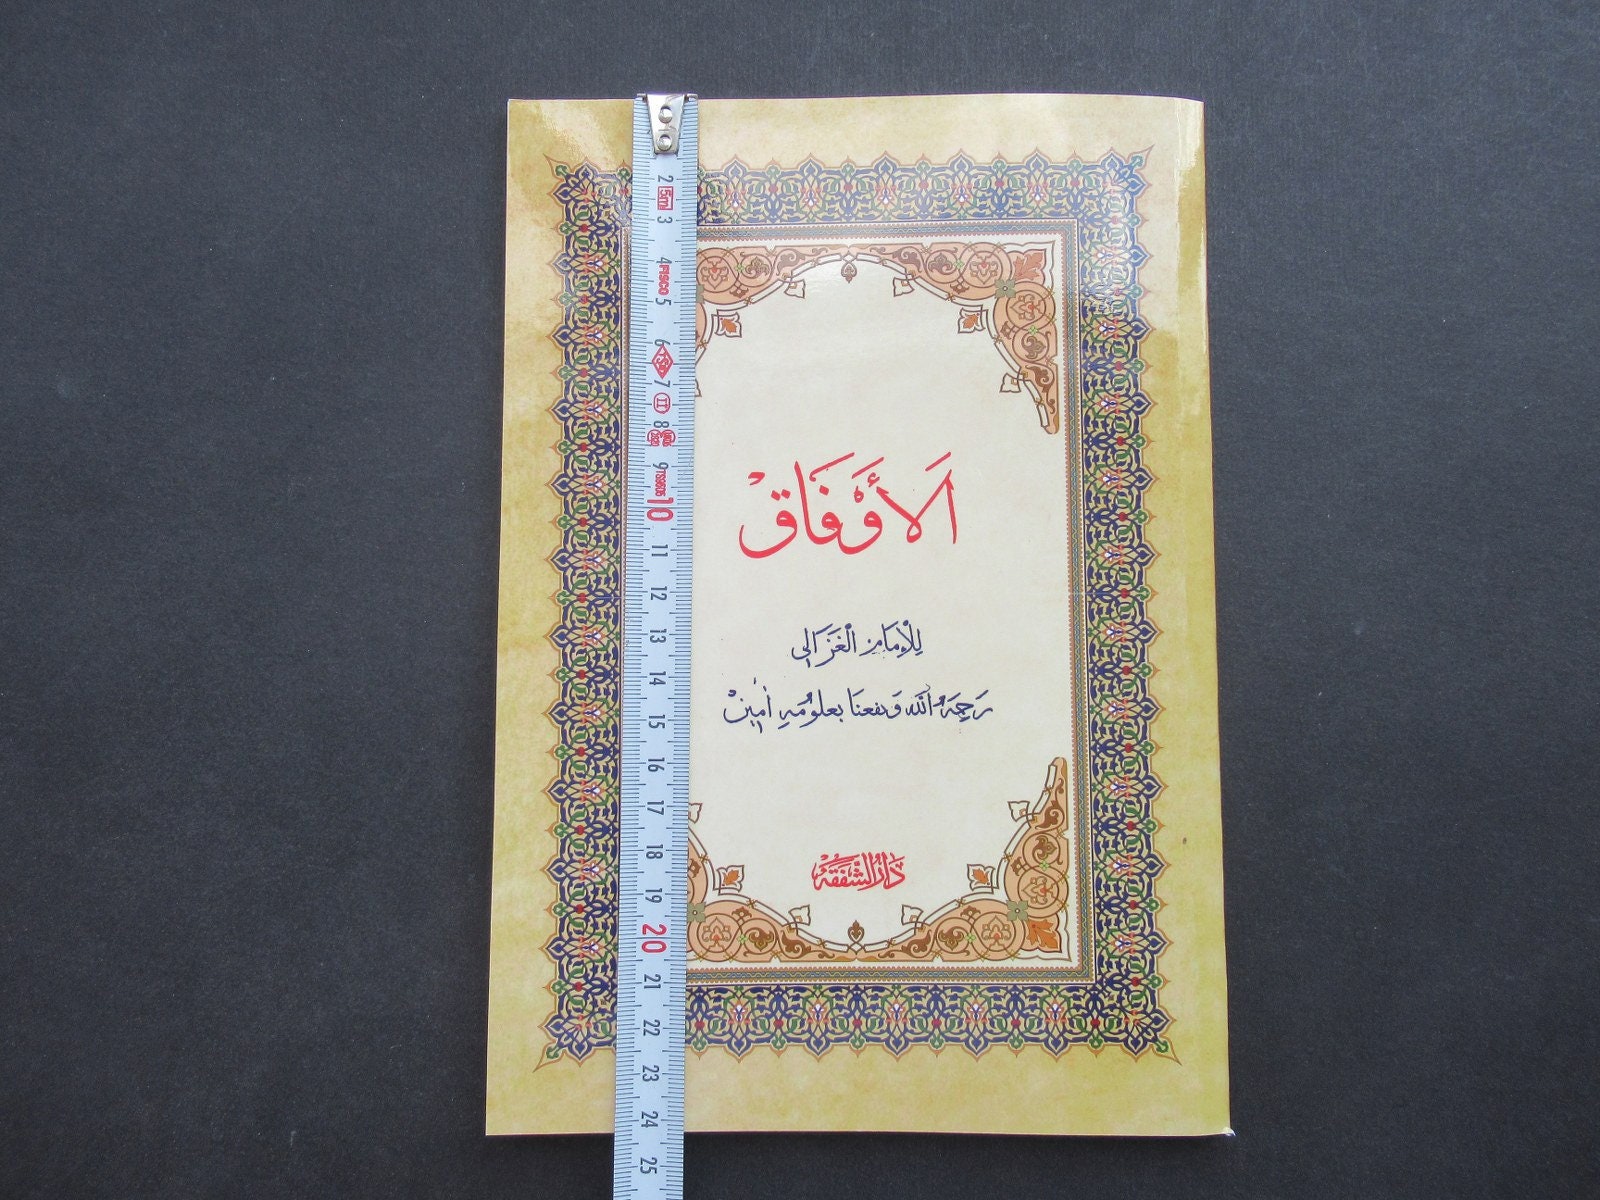 اَلْأَوْفَاقْ
لِلْاِمَامِ الْغَزَالِى
رَحِمَهُ اللّٰه وَنفعنَا بعلُومِهِ اٰمِينْ
دَارُ الشَّفَقَةْ
2
5m
3
4
FISCO
5
6
7
II
8
9
10
11
12
13
14
15
16
17
18
19
20
21
22
23
24
25